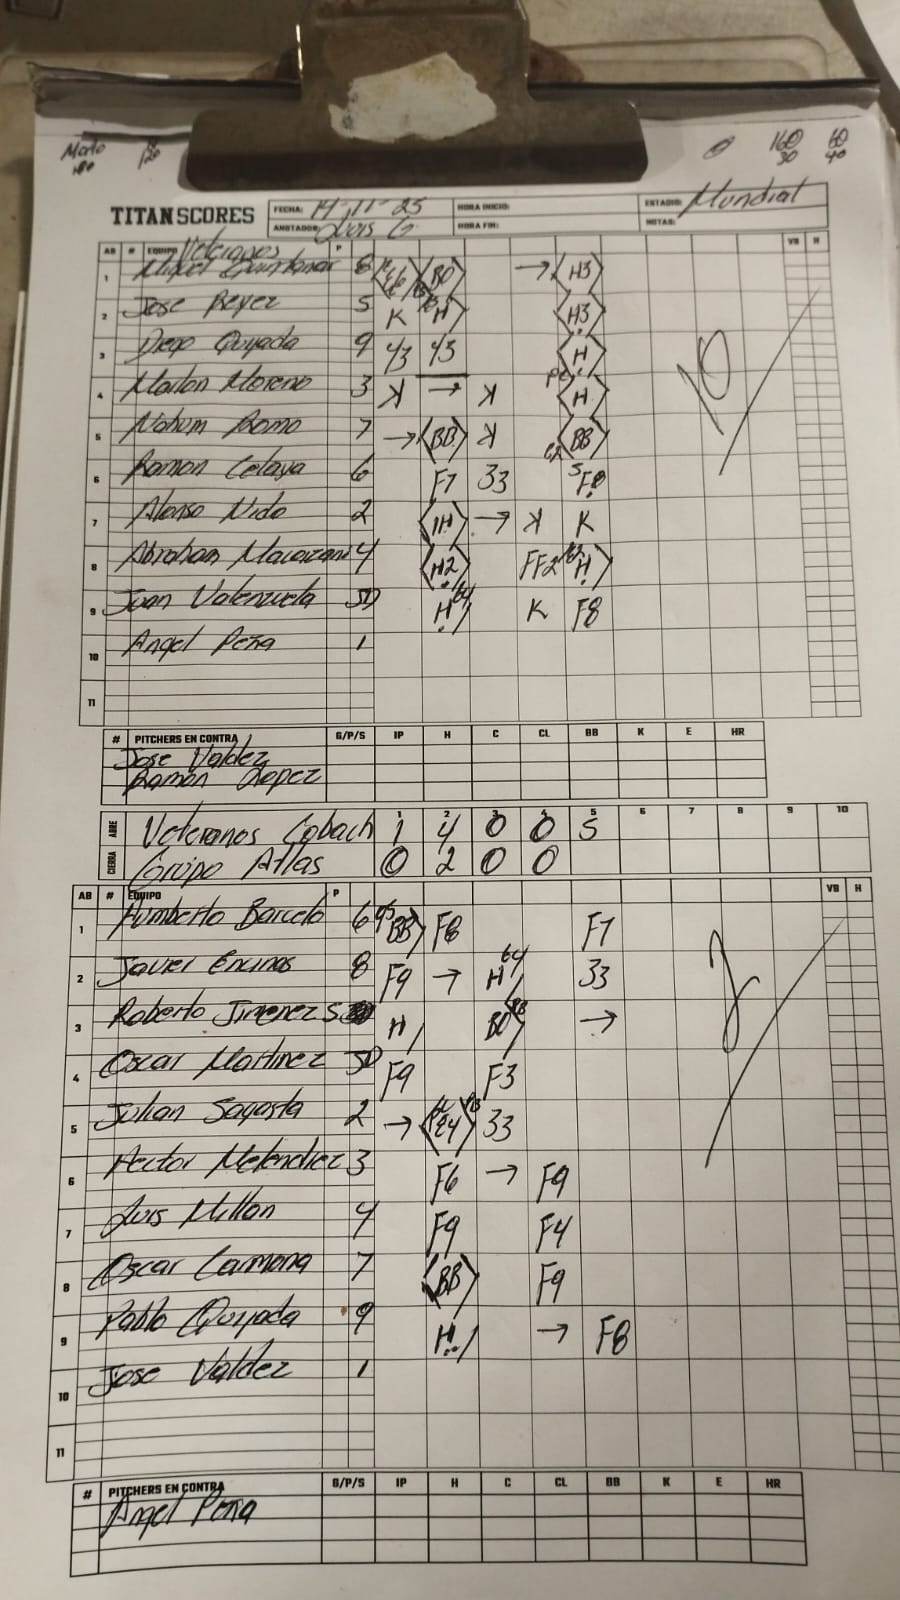 160 60
180 120 30 40
TITAN SCORES FECHA: 14-11-25 HORA INICIO: ESTADIO: Mundial
ANOTADOR: Luis G HORA FIN: NOTAS:
AB # EQUIPO Veteranos P VB H
1 Miguel Quintanar 8 BO → H3
2 Jose Reyez 5 K H H3
3 Diego Quijada 9 43 43 H
4 Marlon Moreno 3 K → K H
5 Nahum Romo 7 → BB K BB
6 Ramon Celaya 6 F7 33 F8
7 Alonso Nido 2 1H → K K
8 Abraham 4 H2 FF2 H
9 Juan Valenzuela SD H 64 K F8
10 Angel Peña 1
11
10
# PITCHERS EN CONTRA G/P/S IP H C CL BB K E HR
Jose Valdez
Ramón Lopez
1 2 3 4 5 6 7 8 9 10
ABRE Veteranos Cobach 1 4 0 0 5
CIERRA Grupo Atlas 0 2 0 0
AB # EQUIPO P VB H
1 Humberto Barcelo 6 BB F8 F7
2 Javier Encinas 8 F9 → H 64 33
3 Roberto Jimenez S H BO →
4 Oscar Martinez SD F9 F3
5 Julian Sagasta 2 → E4 33
6 Hector Melendrez 3 F6 → F9
7 Luis Millan 4 F9 F4
8 Oscar Carmona 7 BB F9
9 Pablo Quijada 9 H → F8
10 Jose Valdez 1
11
2
# PITCHERS EN CONTRA G/P/S IP H C CL BB K E HR
Angel Peña